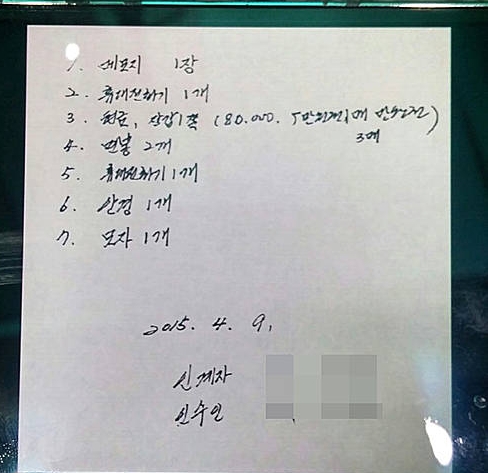 1. 메모지 1장
2. 휴대전화기 1개
3. 현금, 장갑1쪽 (80,000. 5만원권1매 만원권
3매)
4. 면봉 2개
5. 휴대전화기 1개
6. 안경 1개
7. 모자 1개
2015. 4. 9.
인계자
인수인